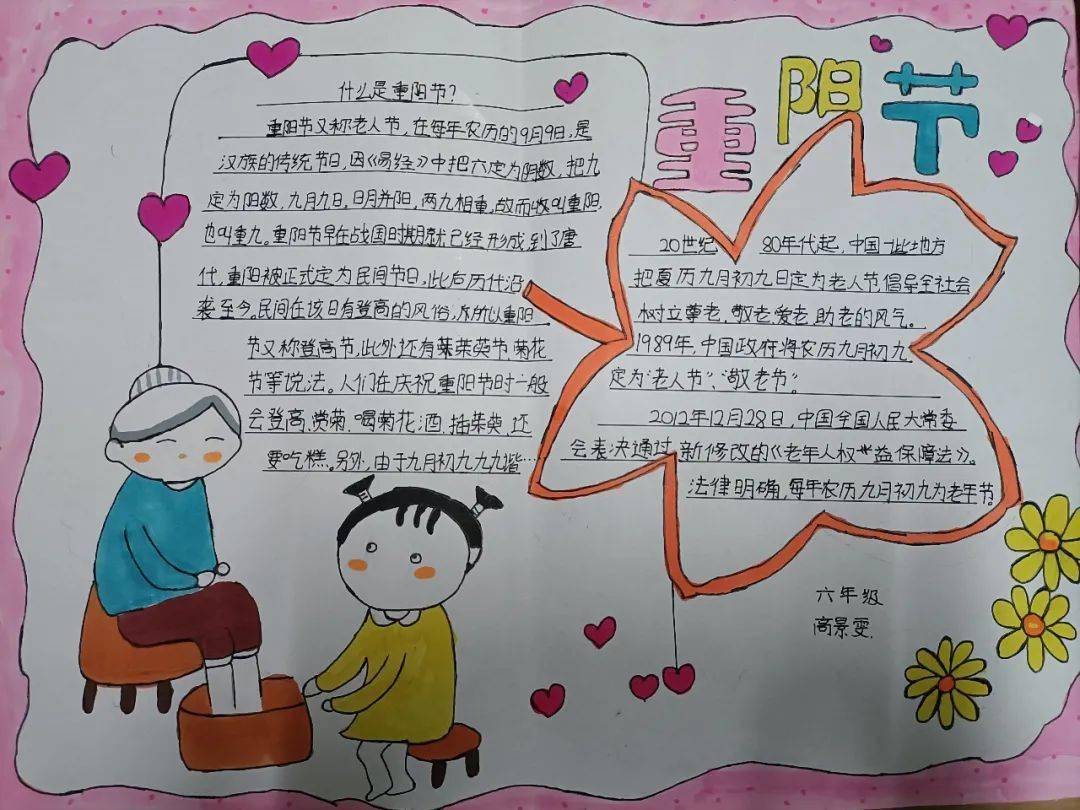 重阳节
什么是重阳节?
重阳节又称老人节,在每年农历的9月9日,是
汉族的传统节日,因《易经》中把六定为阴数,把九
定为阳数,九月九日,日月并阳,两九相重,故而叫重阳,
也叫重九。重阳节早在战国时期就已经形成,到了唐
代,重阳被正式定为民间节日,此后历代沿
袭至今,民间在该日有登高的风俗,所以重阳
节又称登高节,此外还有茱萸节、菊花
节等说法。人们在庆祝重阳节时一般
会登高、赏菊、喝菊花酒、插茱萸,还
要吃糕。另外,由于九月初九九九谐…
20世纪80年代起,中国一些地方
把夏历九月初九日定为老人节,倡导全社会
树立尊老、敬老、爱老、助老的风气。
1989年,中国政府将农历九月初九
定为“老人节”、“敬老节”。
2012年12月28日,中国全国人民大常委
会表决通过新修改的《老年人权益保障法》。
法律明确,每年农历九月初九为老年节。
六年级
高景雯